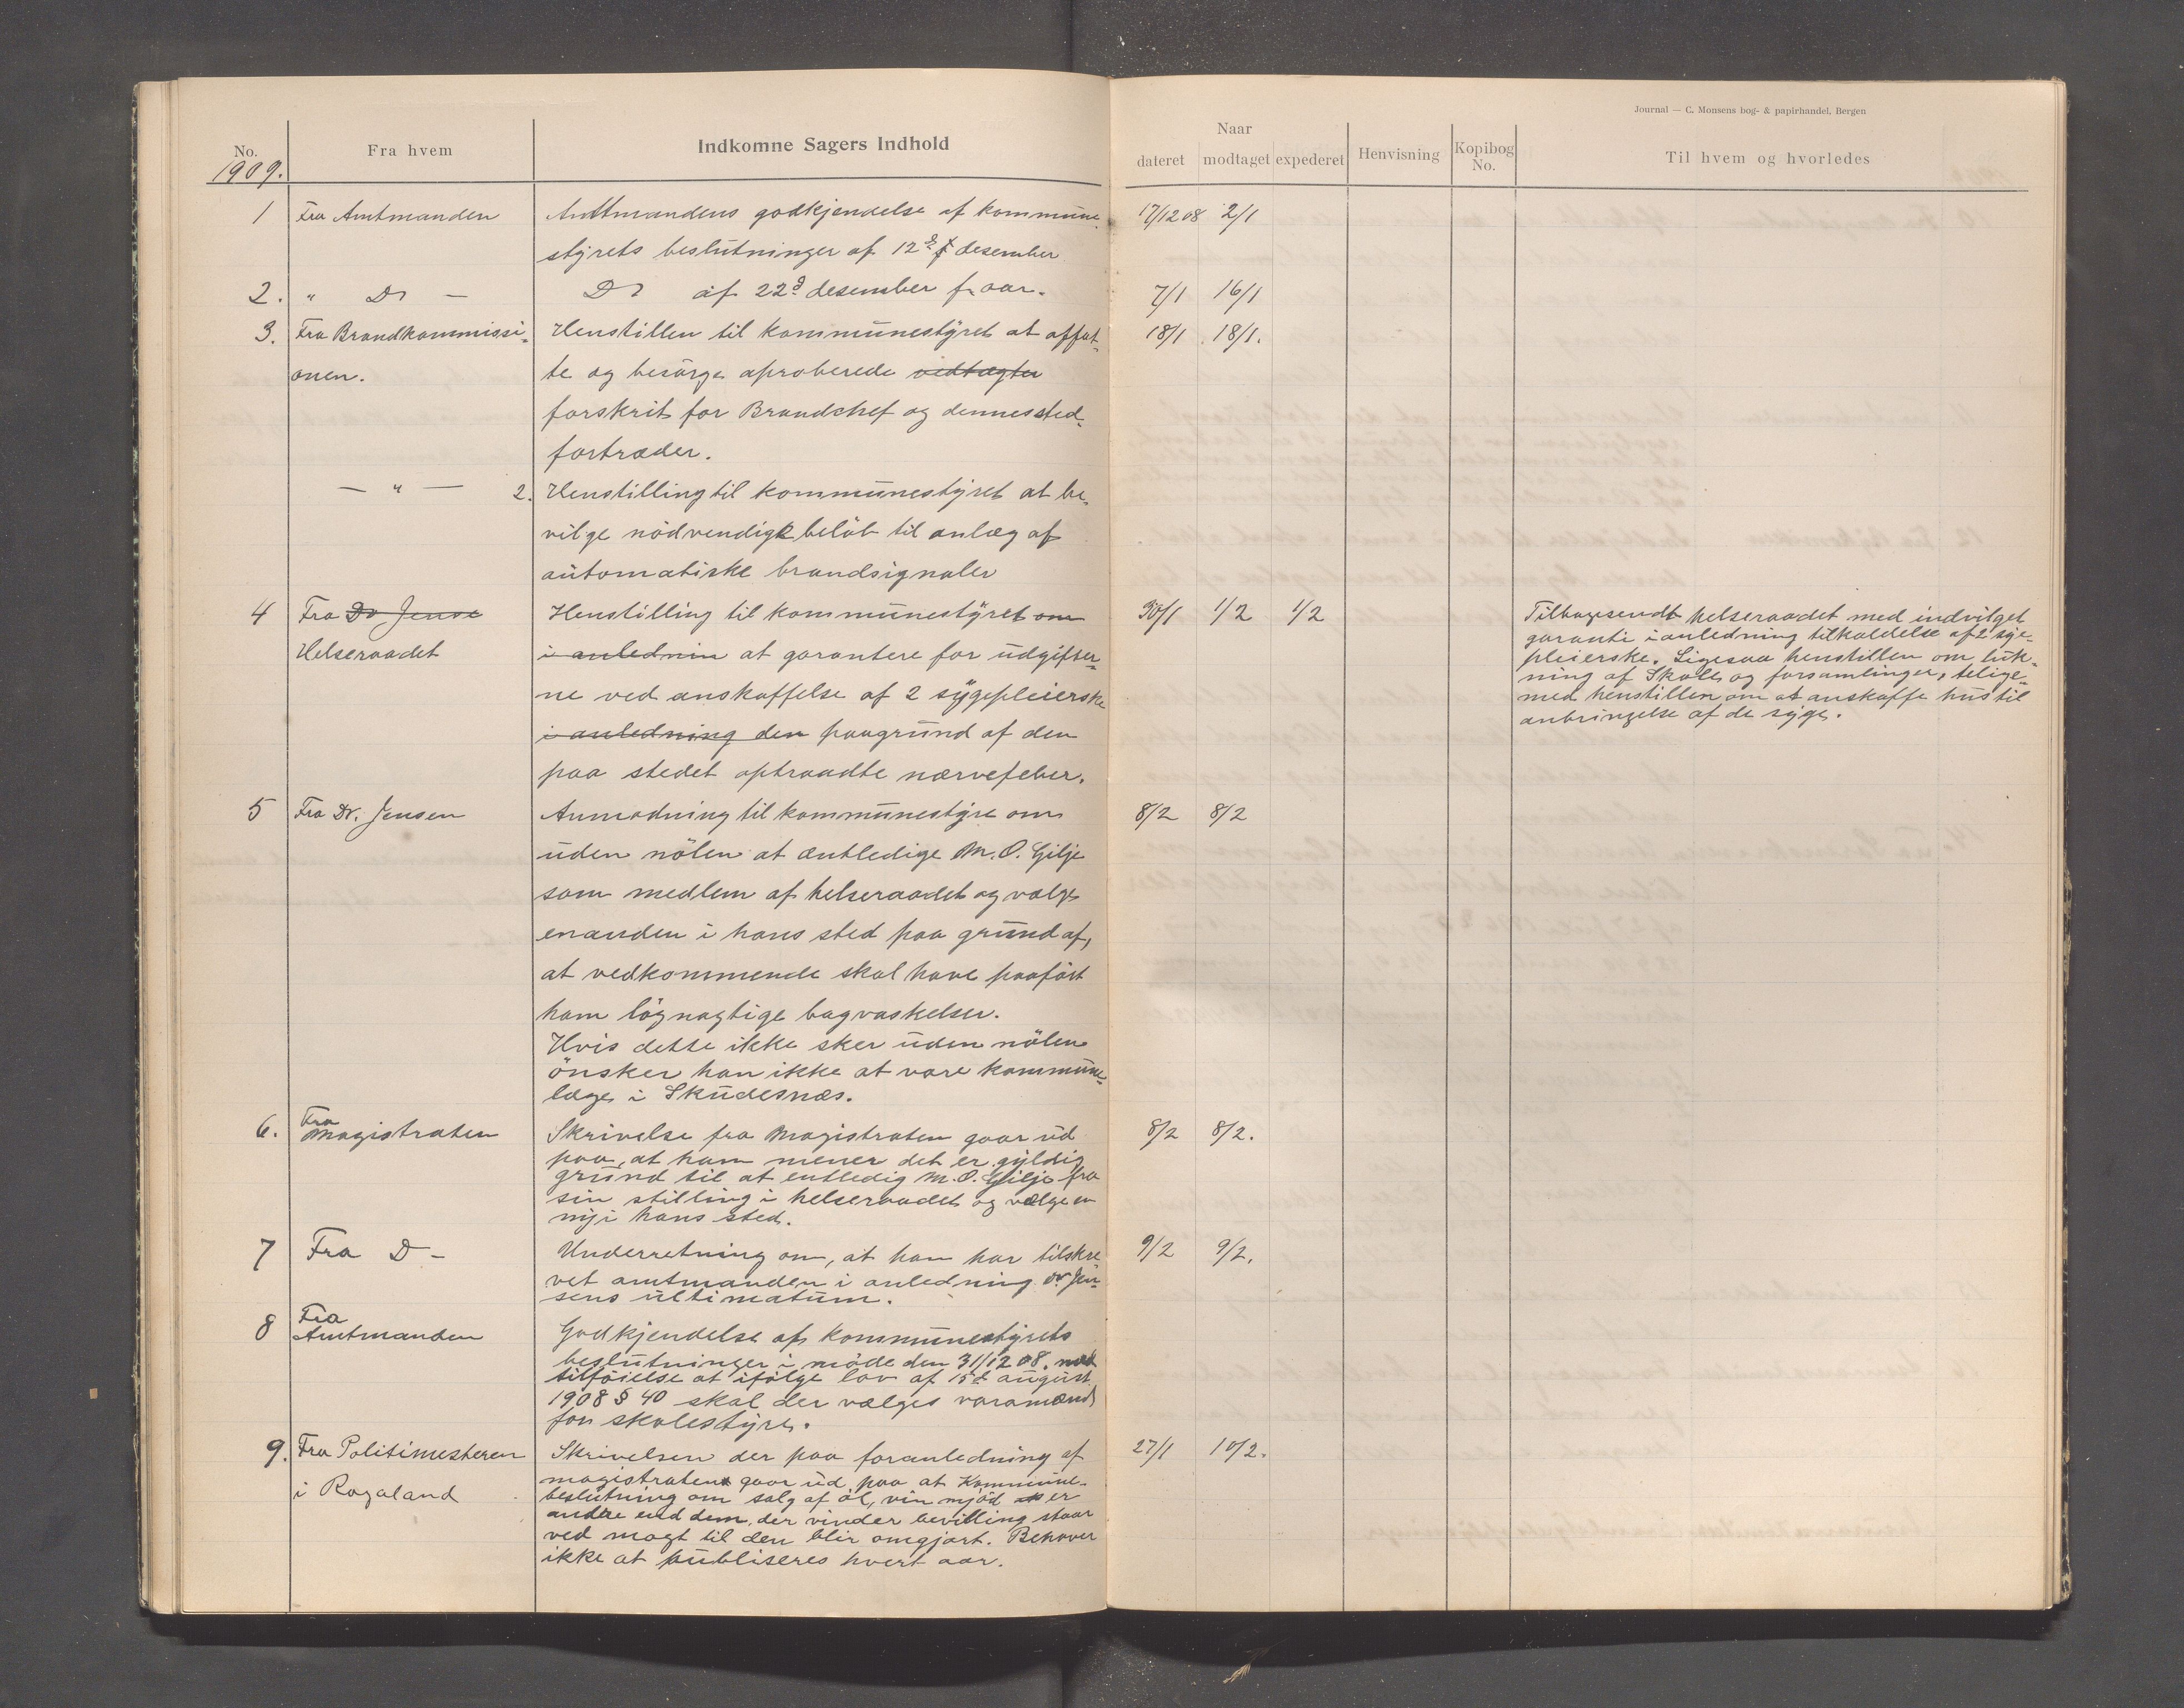 Journal — C. Monsens bog- & papirhandel, Bergen
No. Fra hvem Indkomne Sagers Indhold Naar dateret modtaget expederet Henvisning Kopibog No. Til hvem og hvorledes
1909.
1 Fra Amtmanden Amtmandens godkjendelse af kommune- 17/12 08 2/1
styrets beslutninger af 12d desember
2. " Do — Do af 22d desember f. aar. 7/1 16/1
3. Fra Brandkommissi- Henstillen til kommunestyret at affat- 18/1 18/1.
onen. te og besörge aproberede vedtægter
forskrit for Brandchef og dennes sted-
fortræder.
— " — 2. Henstilling til kommunestyret at be-
vilge nödvendige belöb til anlæg af
automatiske brandsignaler
4 Fra Dr Jense Henstilling til kommunestyret om 30/1 1/2 1/2 Tilbagesendt helseraadet med indvilget
Helseraadet i anlednin at garantere for udgifter- garanti i anledning tilkaldelse af 2 syge-
ne ved anskaffelse af 2 sygepleierske pleierske. Ligesaa henstillen om luk-
i anledning den paagrund af den ning af Skole og forsamlinger, telige-
paa stedet optraadte nærvefeber. med henstillen om at anskaffe hus til
anbringelse af de syge.
5 Fra Dr. Jensen Anmodning til kommunestyre om 8/2 8/2
uden nölen at æntledige M. O. Gilje
som medlem af helseraadet og vælge
enanden i hans sted paa grund af,
at vedkommende skal have paaført
ham lögnagtige bagvaskelser.
Hvis dette ikke sker uden nölen
önsker han ikke at være kommune-
læge i Skudesnæs.
6. Fra Magistraten Skrivelse fra Magistraten gaar ud 8/2 8/2.
paa, at ham mener det er gyldig
grund til at entledig M. O. Gilje fra
sin stilling i helseraadet og vælge en
ny i hans sted.
7 Fra D — Underretning om, at han har tilskre- 9/2 9/2.
vet amtmanden i anledning Dr. Jen-
sens ultimatum.
8 Fra Amtmanden Godkjendelse af kommunestyrets
beslutninger i möde den 31/12 08. med
tilföielse at ifölge lov af 15de august
1908 § 40 skal der vælges varamænd
for skolestyre.
9. Fra Politimesteren Skrivelsen der paa foranledning af 27/1 10/2.
i Rogaland magistraten gaar ud paa at Kommune-
beslutning om salg af öl, vin mjöd er
andre end dem, der vinder bevilling staar
ved magt til den blir omgjort. Behøver
ikke at publiseres hvert aar.